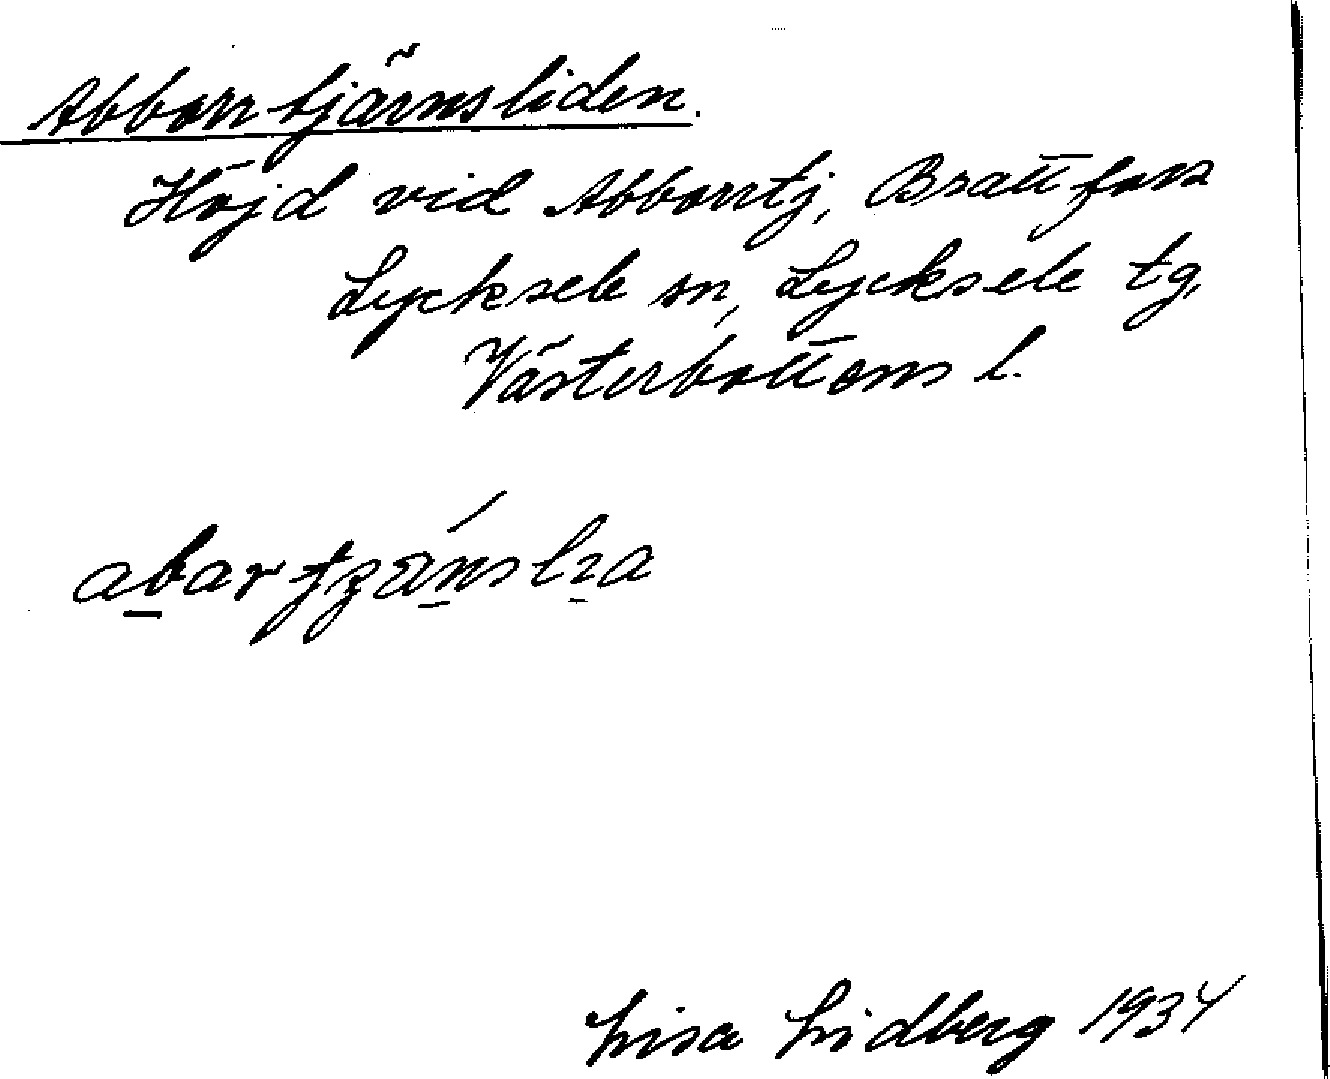 Abborrtjärnsliden.
Höjd vid Abborrtj, Brattfors
Lycksele sn, Lycksele tg,
Västerbottens l.
Lisa Lidberg 1934